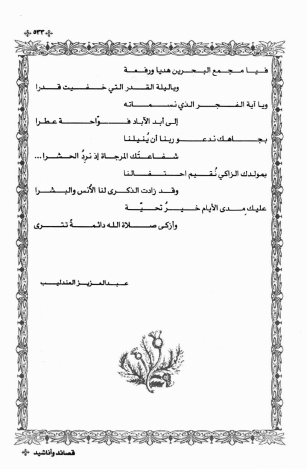 ٥٣٣
فـيـا مـجـمع البـحـرين هديا ورفـعـة
وياليلة القـدر التي خـفـيت قـدرا
ويا آية الفـجـر الذي نسـمـاته
إلى أبد الآباد فـوّاحـة عطرا
بجـاهـك ندعـو ربنا أن يُنيلنا
شـفـاعتَك المرجـاة إذ نردُ الحـشـرا...
بمولدك الزاكي نُقـيم احـتـفـالنا
وقـد زادت الذكـرى لنا الأنس والبـشـرا
عليك مـدى الأيام خـيـرُ تحـيّـة
وأزكى صـلاة اللـه دائمـةً تتـرى
عـبـدالعـزيـز العندليب
قصائد وأناشيد